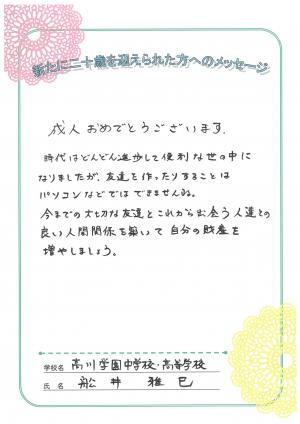 新たに二十歳を迎えられた方へのメッセージ
成人おめでとうございます。
時代はどんどん進歩して便利な世の中に
なりましたが、友達を作ったりすることは
パソコンなどではできませんね。
今までの大切な友達とこれから出会う人達との
良い人間関係を築いて自分の財産を
増やしましょう。
学校名 高川学園中学校・高等学校
氏名 舩井 雅巳